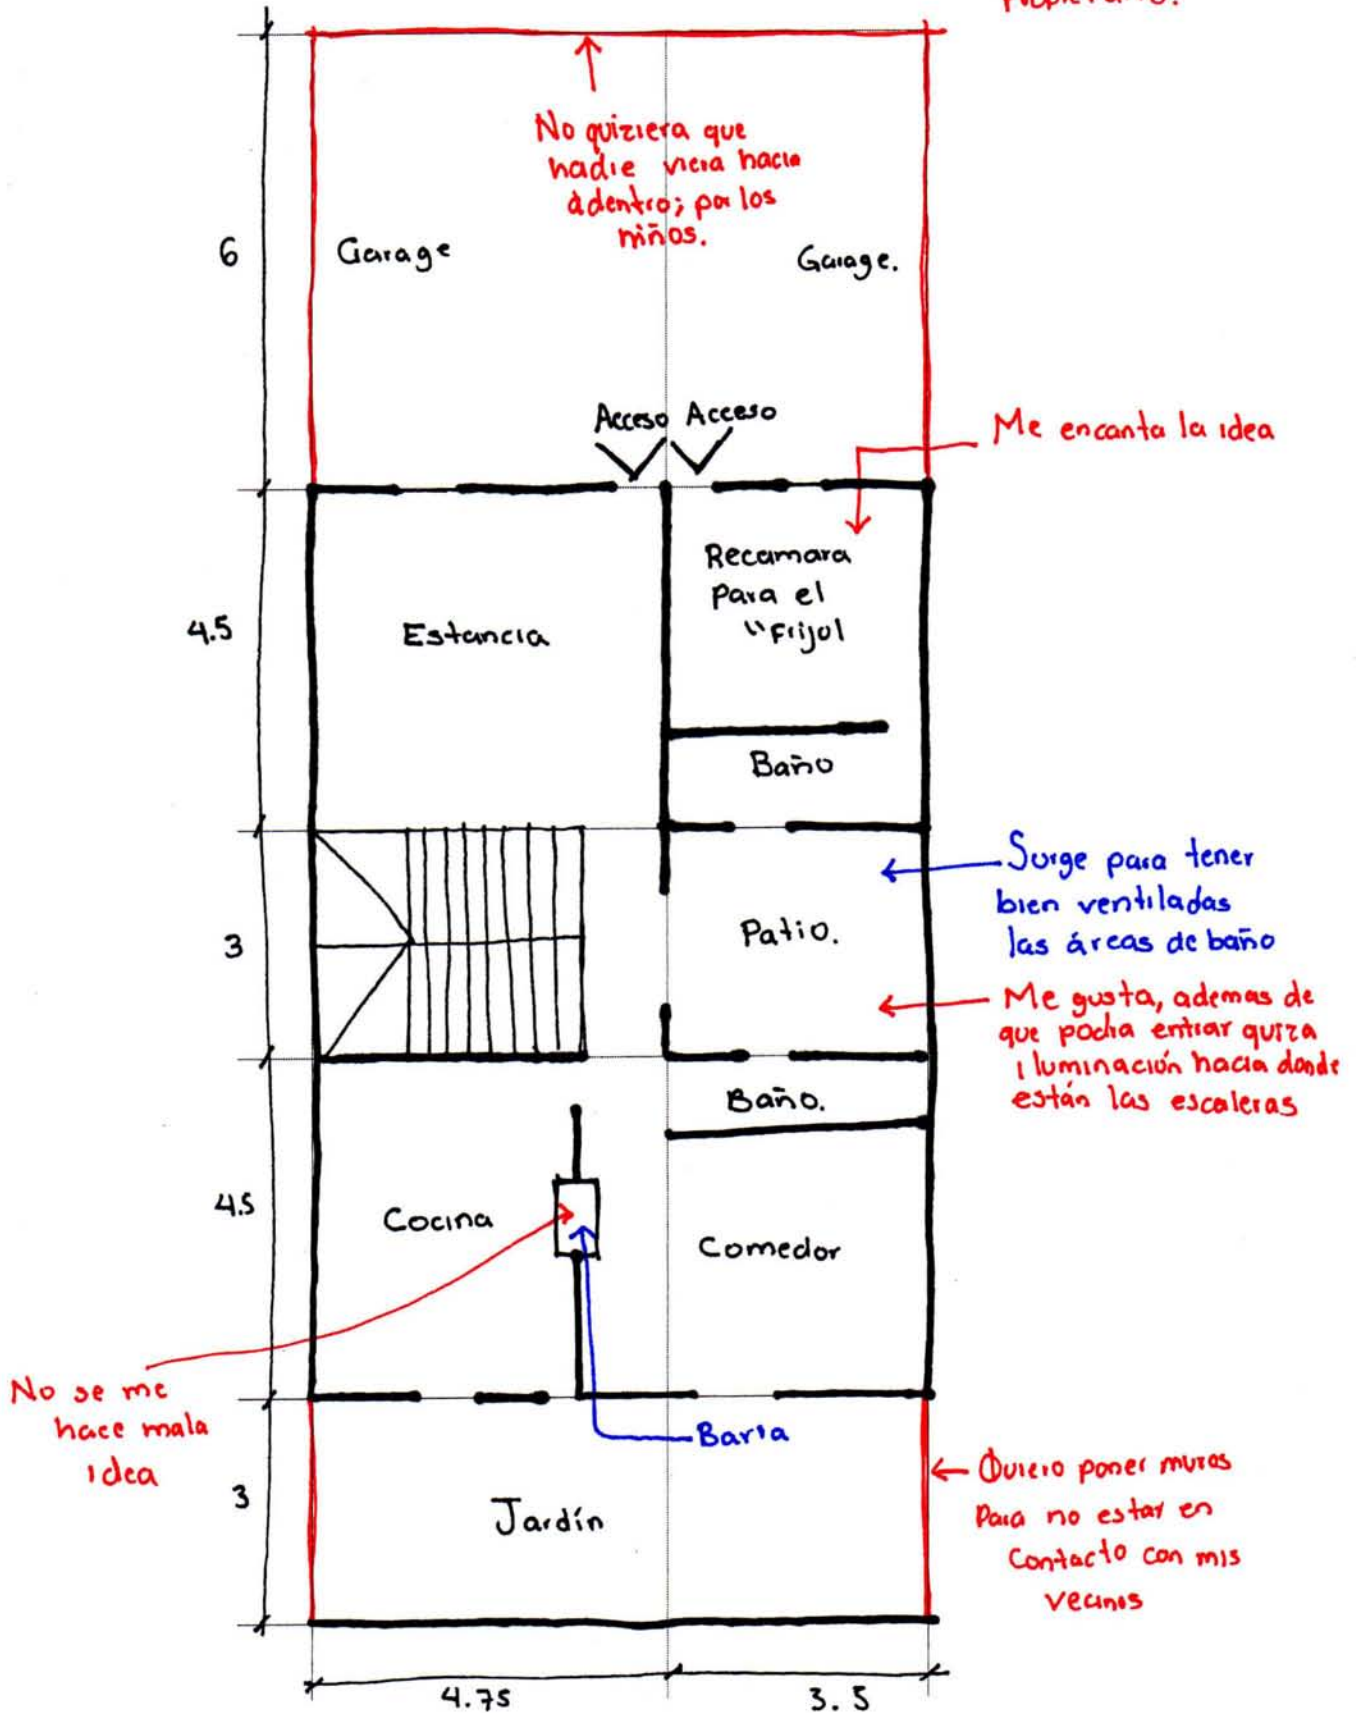 No quiziera que
nadie viera hacia
adentro; por los
niños.
6
Garage
Garage.
Acceso Acceso
Me encanta la idea
Recamara
Para el
"Frijol
4.5
Estancia
Baño
Surge para tener
bien ventiladas
las áreas de baño
3
Patio.
Me gusta, ademas de
que podia entrar quiza
iluminación hacia donde
están las escaleras
Baño.
4.5
Cocina
Comedor
No se me
hace mala
idea
Barra
Quiero poner muros
Para no estar en
Contacto con mis
vecinos
3
Jardín
4.75
3.5